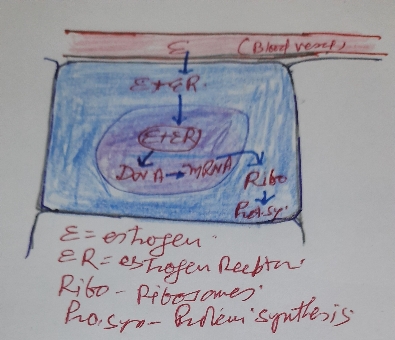 E (Blood vessel)
E + ER
(E+ER)
DNA → mRNA
Ribo
Pro.sy.
E = estrogen.
ER = estrogen Receptor.
Ribo - Ribosomes.
Pro.syn - Protein synthesis